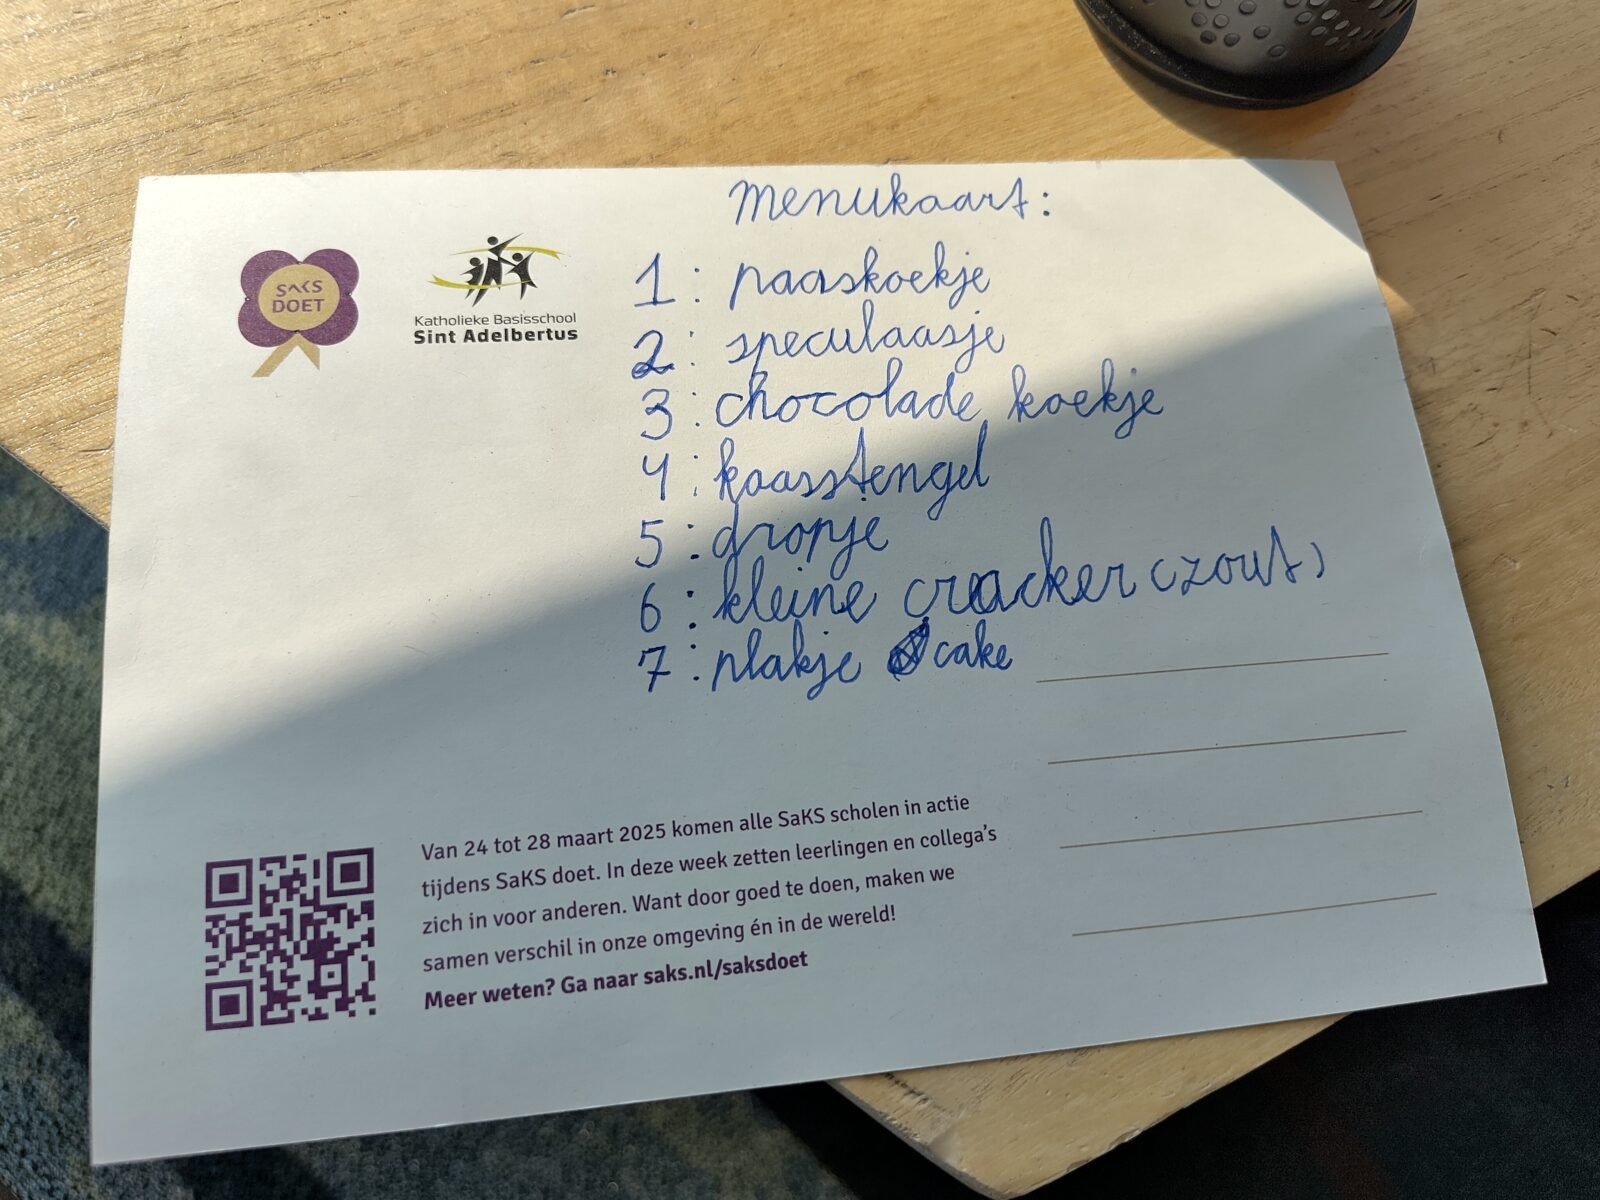 Menukaart:
1: paaskoekje
2: speculaasje
3: chocolade koekje
4: kaasstengel
5: dropje
6: kleine cracker (zout)
7: plakje cake
SAKS
DOET
Katholieke Basisschool
Sint Adelbertus
Van 24 tot 28 maart 2025 komen alle SaKS scholen in actie
tijdens SaKS doet. In deze week zetten leerlingen en collega's
zich in voor anderen. Want door goed te doen, maken we
samen verschil in onze omgeving én in de wereld!
Meer weten? Ga naar saks.nl/saksdoet